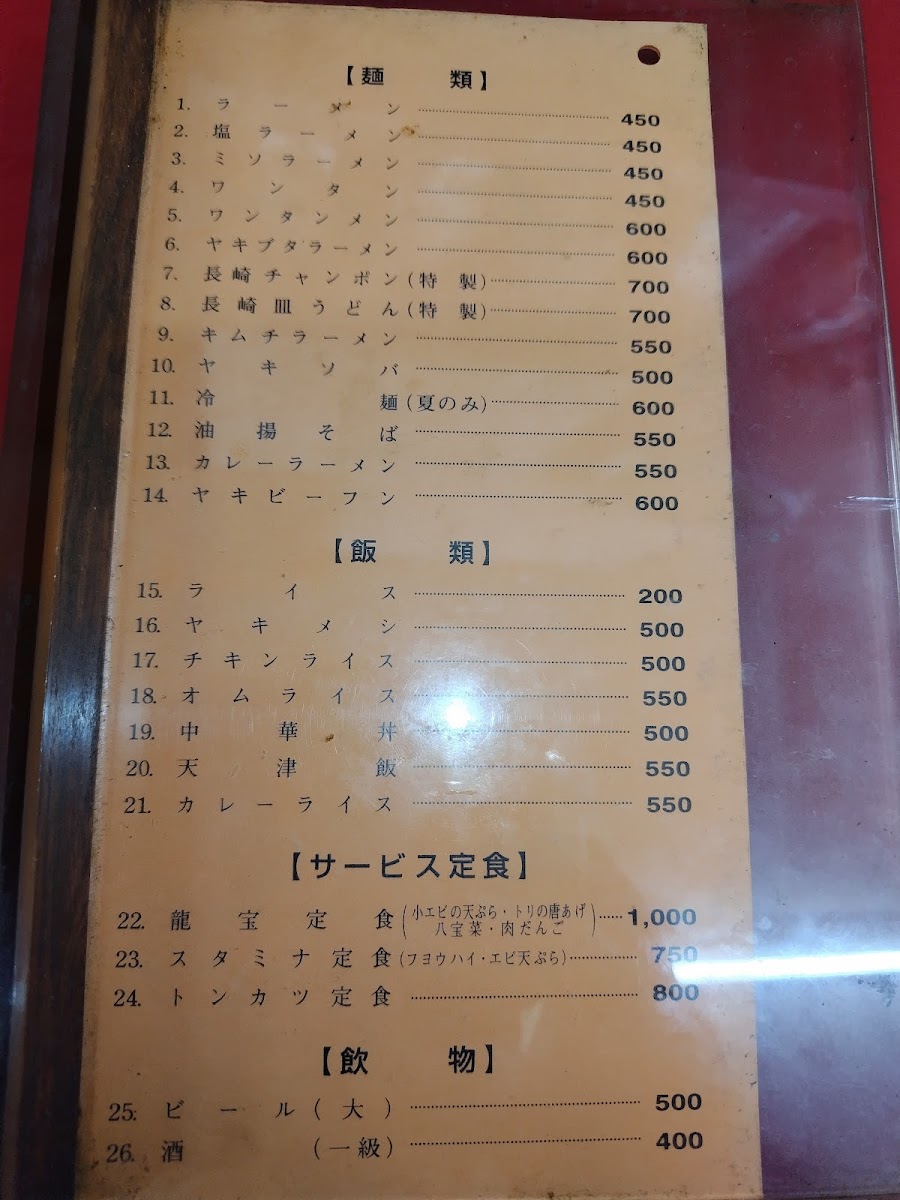 【麺 類】
1. ラーメン 450
2. 塩ラーメン 450
3. ミソラーメン 450
4. ワンタン 450
5. ワンタンメン 600
6. ヤキブタラーメン 600
7. 長崎チャンポン(特製) 700
8. 長崎皿うどん(特製) 700
9. キムチラーメン 550
10. ヤキソバ 500
11. 冷麺(夏のみ) 600
12. 油揚そば 550
13. カレーラーメン 550
14. ヤキビーフン 600
【飯 類】
15. ライス 200
16. ヤキメシ 500
17. チキンライス 500
18. オムライス 550
19. 中華丼 500
20. 天津飯 550
21. カレーライス 550
【サービス定食】
22. 龍宝定食(小エビの天ぷら・トリの唐あげ 1,000
八宝菜・肉だんご)
23. スタミナ定食(フヨウハイ・エビ天ぷら) 750
24. トンカツ定食 800
【飲 物】
25. ビール(大) 500
26. 酒(一級) 400